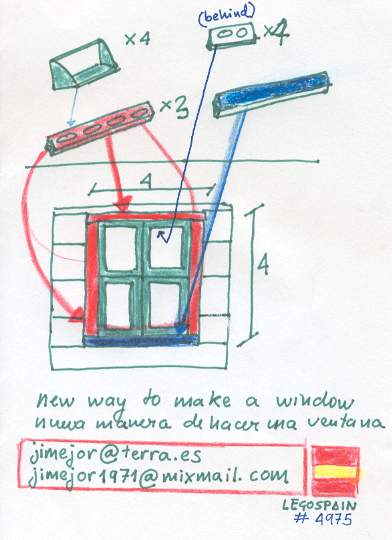 (behind)
x4
x4
x3
4
4
new way to make a window
nueva manera de hacer una ventana
jimejor@terra.es
jimejor1971@mixmail.com
LEGOSPAIN
# 4975